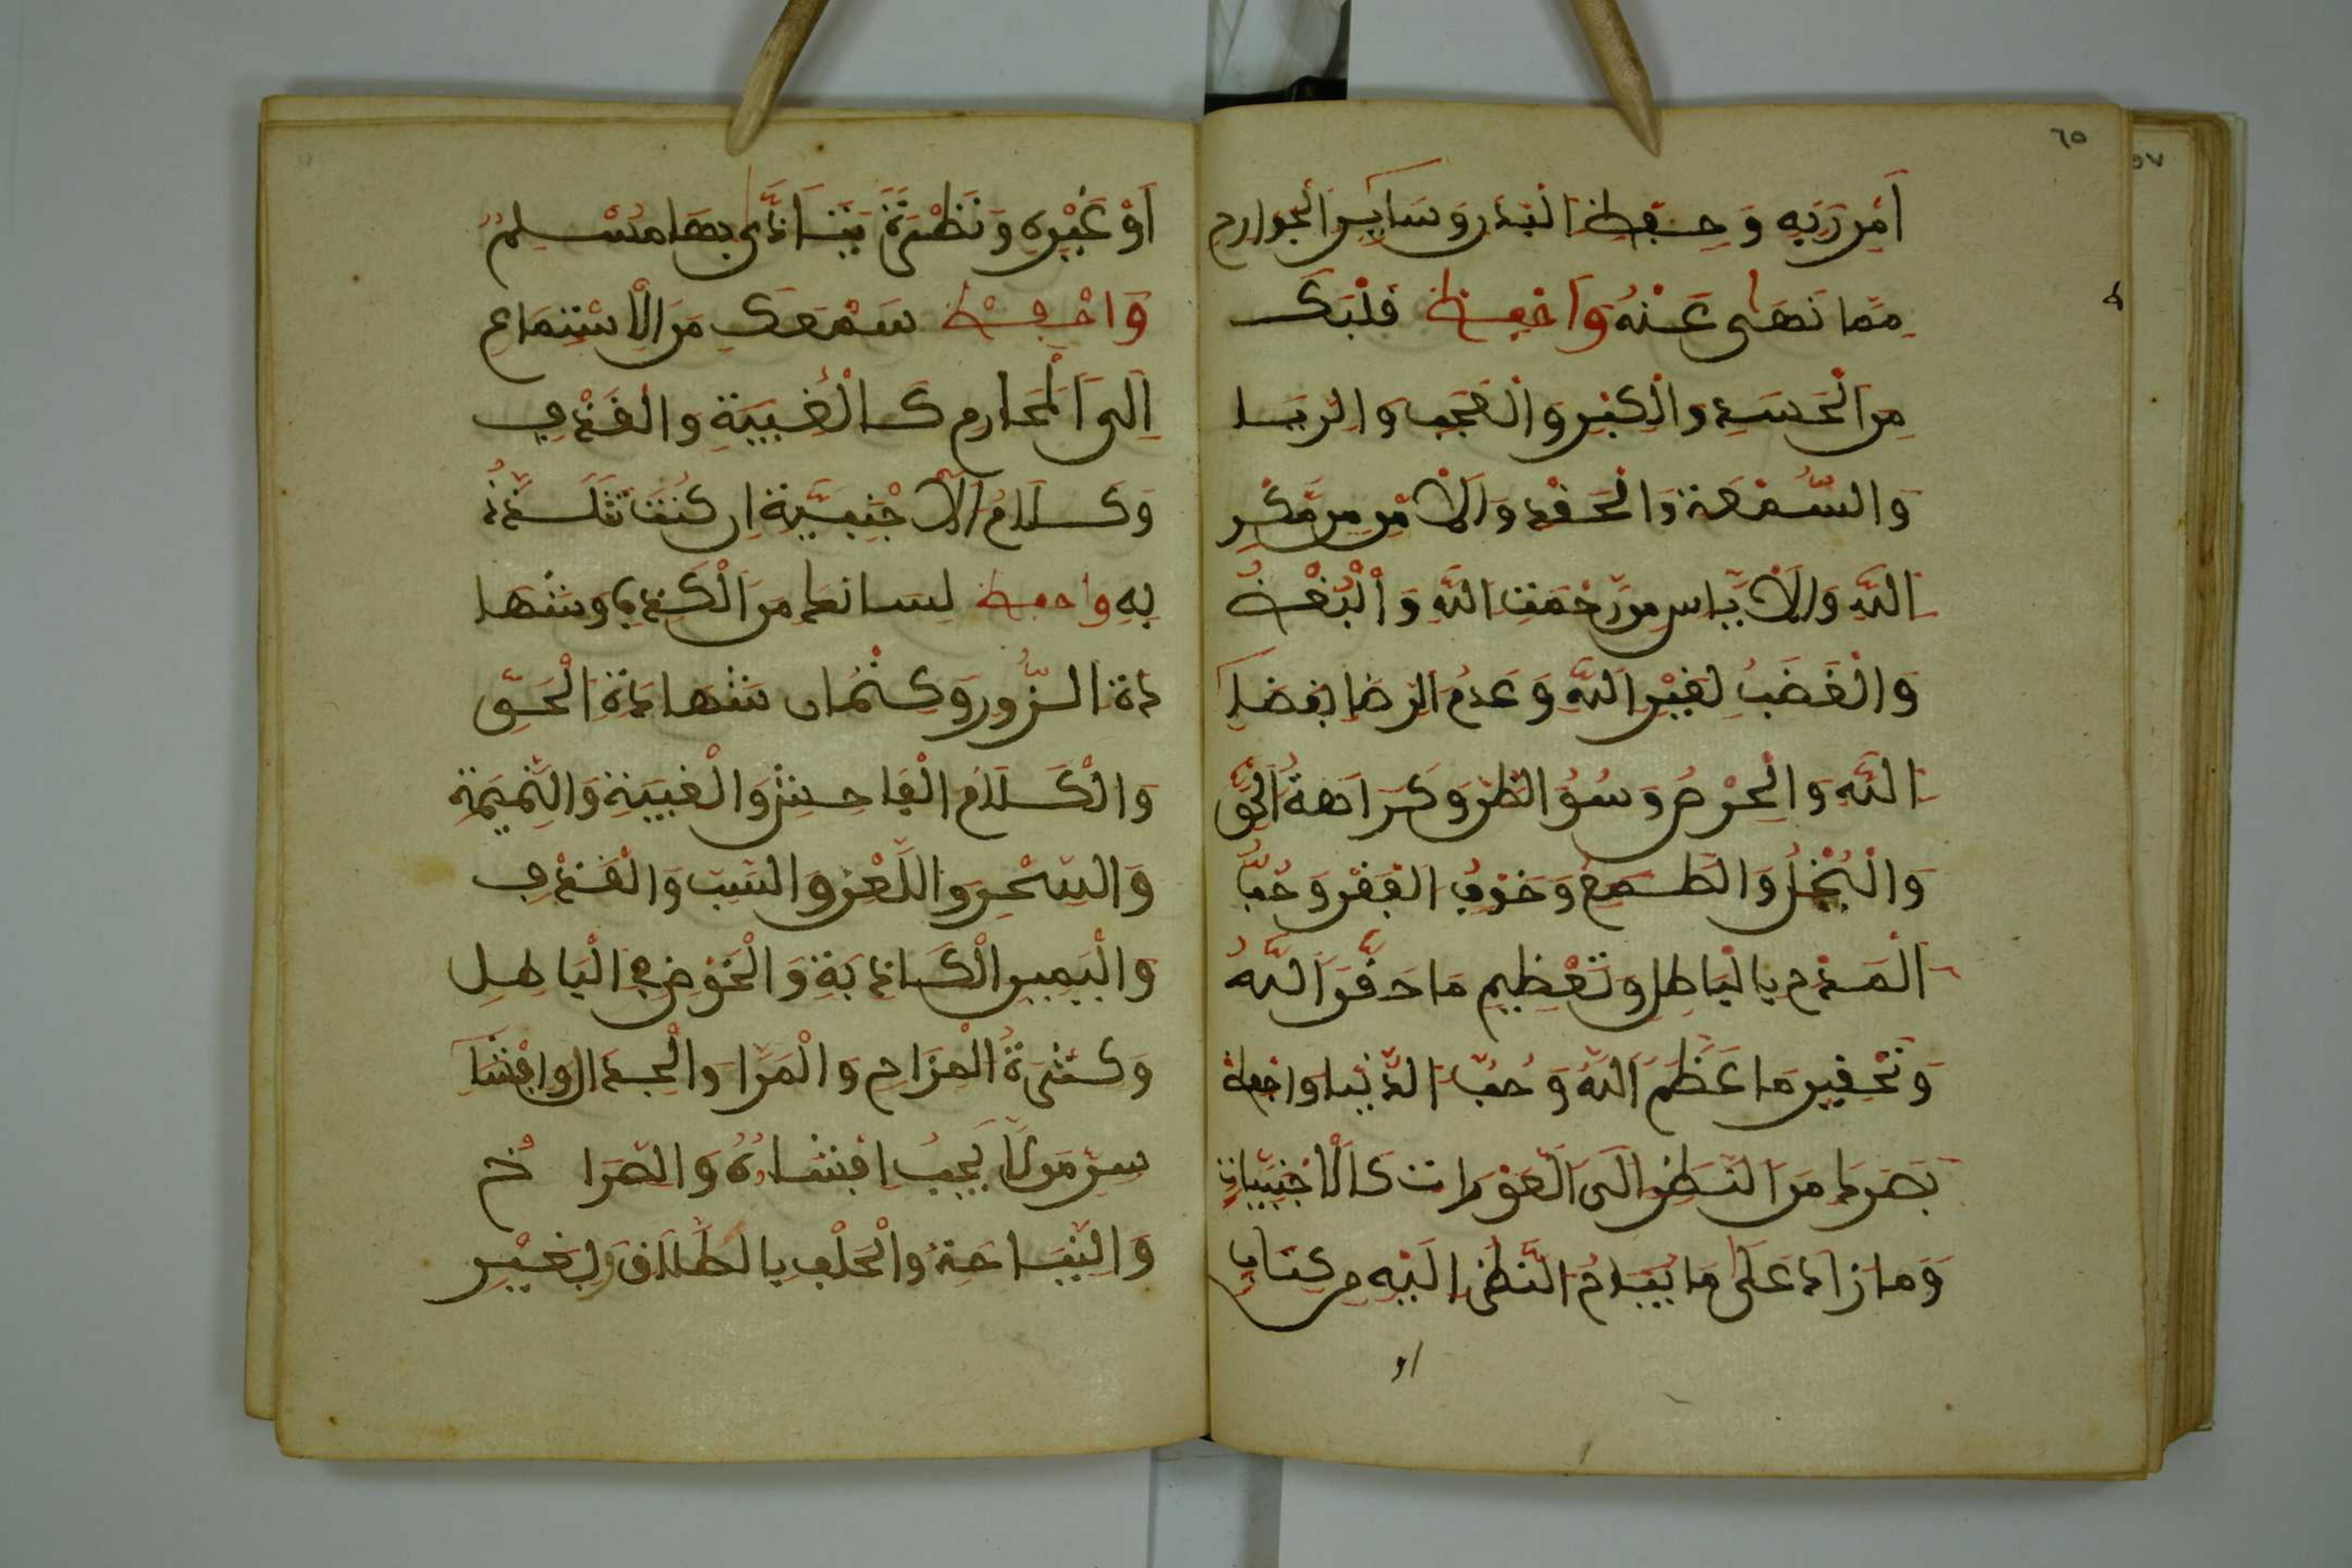 ٦٥
٥٧
أَمْرِ رَبِّهِ وَحِفْظِ الْيَدَيْنِ وَسَايِرِ الْجَوَارِحِ
مِمَّا نَهَى عَنْهُ وَاحْفِظْ قَلْبَكَ
مِنَ الْحَسَدِ وَالْكِبْرِ وَالْعُجْبِ وَالرِّيَا
وَالسُّمْعَةِ وَالْحَقْدِ وَالْأَمْنِ مِنْ مَّكْرِ
اللَّهِ وَالْأَيَّاسِ مِن رَّحْمَتِ اللَّهِ وَالْبُغْضُ
وَالْغَضَبُ لِغَيْرِ اللَّهِ وَعَدَمُ الرِّضَا بِقَضَاءِ
اللَّهِ وَالْحِرْصُ وَسُوُ الظَّنِّ وَكَرَاهَةُ الْحَقِّ
وَالْبُخْلُ وَالطَّمَعُ وَخَوْفِ الْفَقْرِ وَحُبُّ
الْمَدْحِ بِالْبَاطِلِ وَتَعْظِيمِ مَا حَقَّرَ اللَّهُ
وَتَحْقِيرِ مَا عَظَّمَ اللَّهُ وَحُبِّ الدُّنْيَا وَاحْفِظْ
بَصَرَكَ مِنَ النَّظَرِ إِلَى الْعَوْرَاتِ كَالْأَجْنَبِيَّاتِ
وَمَا زَادَ عَلَى مَا يُبَاحُ النَّظَرُ إِلَيْهِ مِن كِتَابٍ
او
أَوْ غَيْرِهِ وَنَظْرَةٍ يَتَأَذَّى بِهَا مُسْلِمٌ
وَاحْفِظْ سَمْعَكَ مِنَ الْاسْتِمَاعِ
إِلَى الْمَحَارِمِ كَالْغِيبَةِ وَالْقَذْفِ
وَكَلَامُ الْأَجْنَبِيَّةِ إِن كُنْتَ تَتَلَذَّذُ
بِهِ وَاحْفِظْ لِسَانَكَ مِنَ الْكَذِبِ وَشَهَا
دَةِ الزُّورِ وَكِتْمَانِ شَهَادَةِ الْحَقِّ
وَالْكَلَامُ الْفَاحِشِ وَالْغِيبَةِ وَالنَّمِيمَةِ
وَالسِّحْرِ وَاللَّعْنِ وَالسَّبِّ وَالْقَذْفِ
وَالْيَمِينِ الْكَاذِبَةِ وَالْخَوْضِ فِي الْبَاطِلِ
وَكَثْرَةُ الْمِزَاحِ وَالْمِرَا وَالْجِدَالِ وَإِفْشَا
سِرِّ مَن لَا يَجِبُ افْشَاؤُهُ وَالصُّرَا خُ
وَالنِّيَاحَةِ وَالْحَلْفِ بِالطَّلَاقِ وَبِغَيْرِ